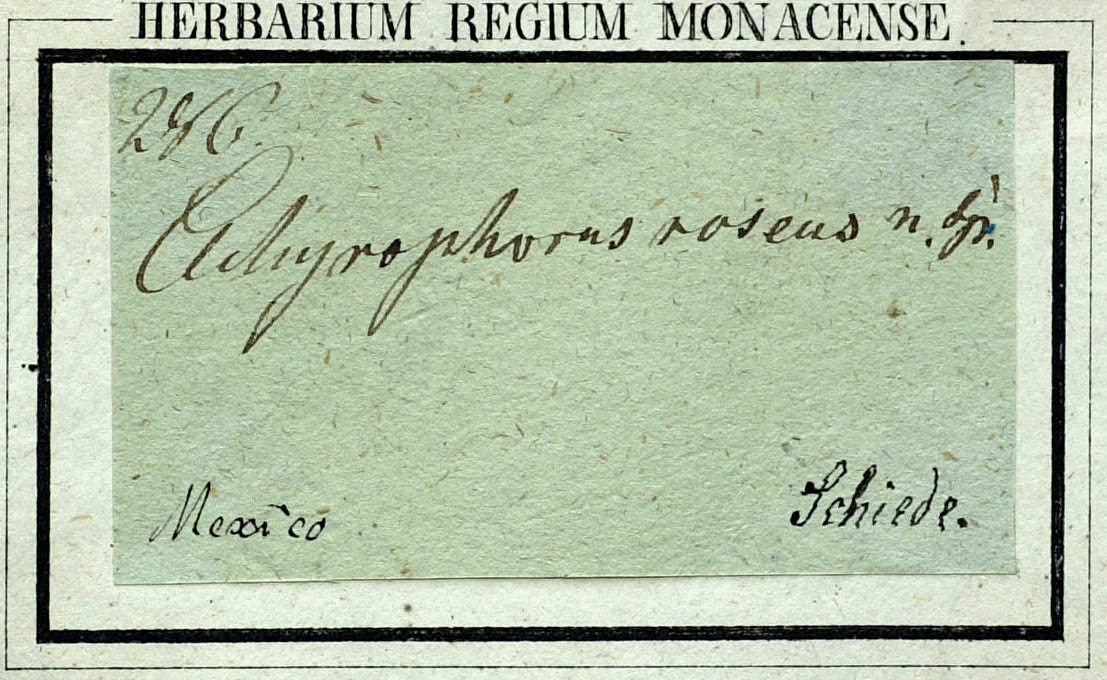 HERBARIUM REGIUM MONACENSE.
Achyrophorus roseus n. sp.
Mexico
Schiede.